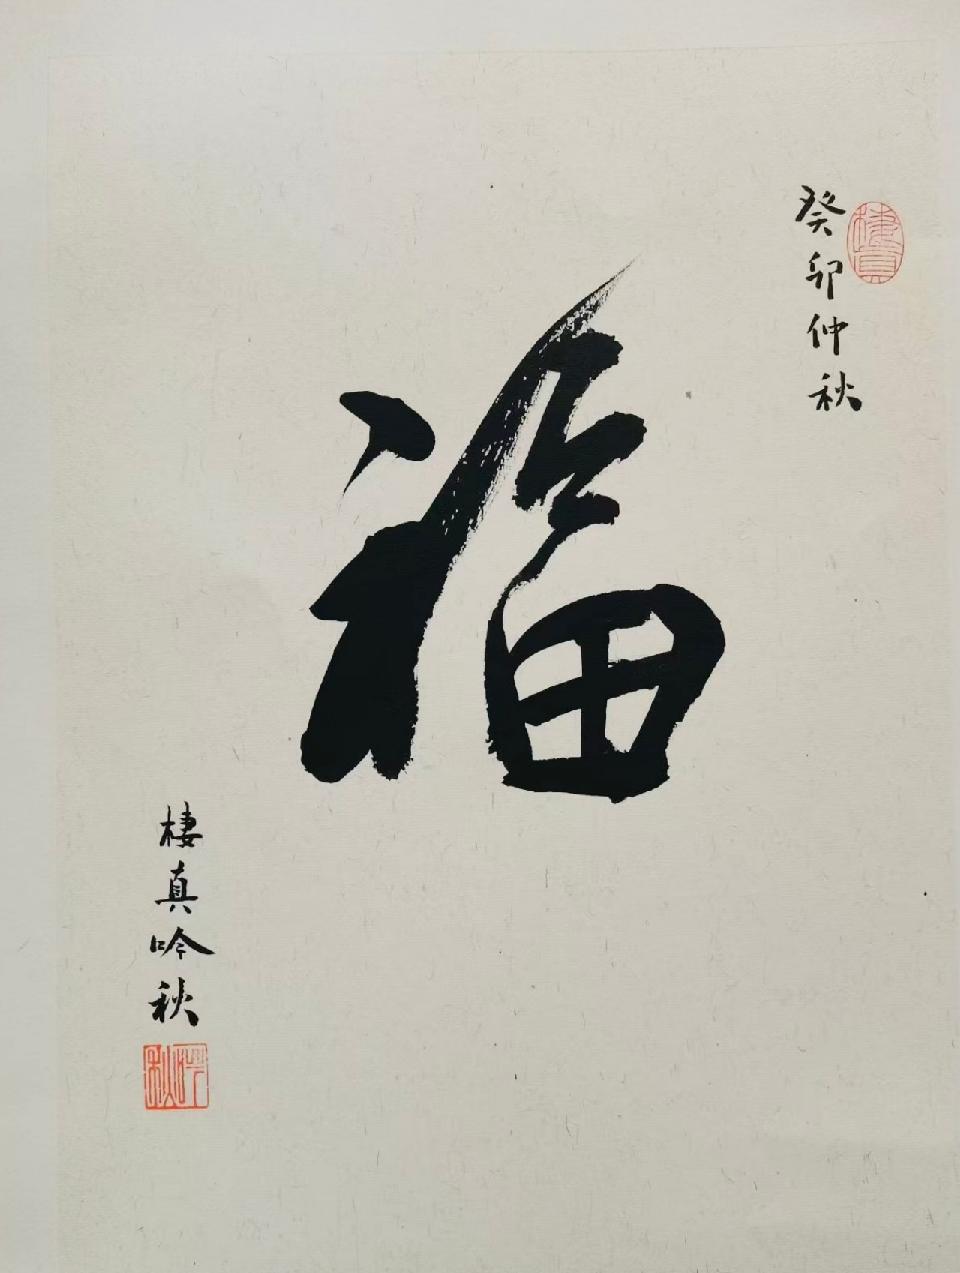 癸卯仲秋
棲真
福
棲真吟秋